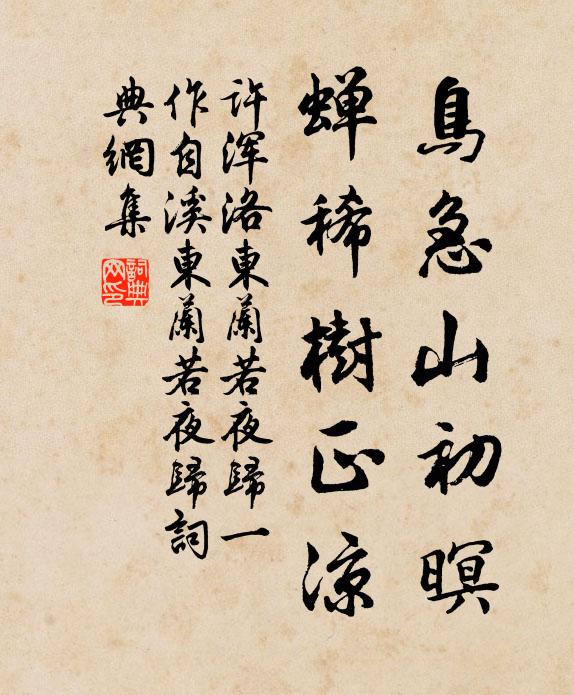 鳥急山初暝
蟬稀樹正涼
許渾洛東蘭若夜歸一
作自溪東蘭若夜歸詞
典網集
詞典
网印